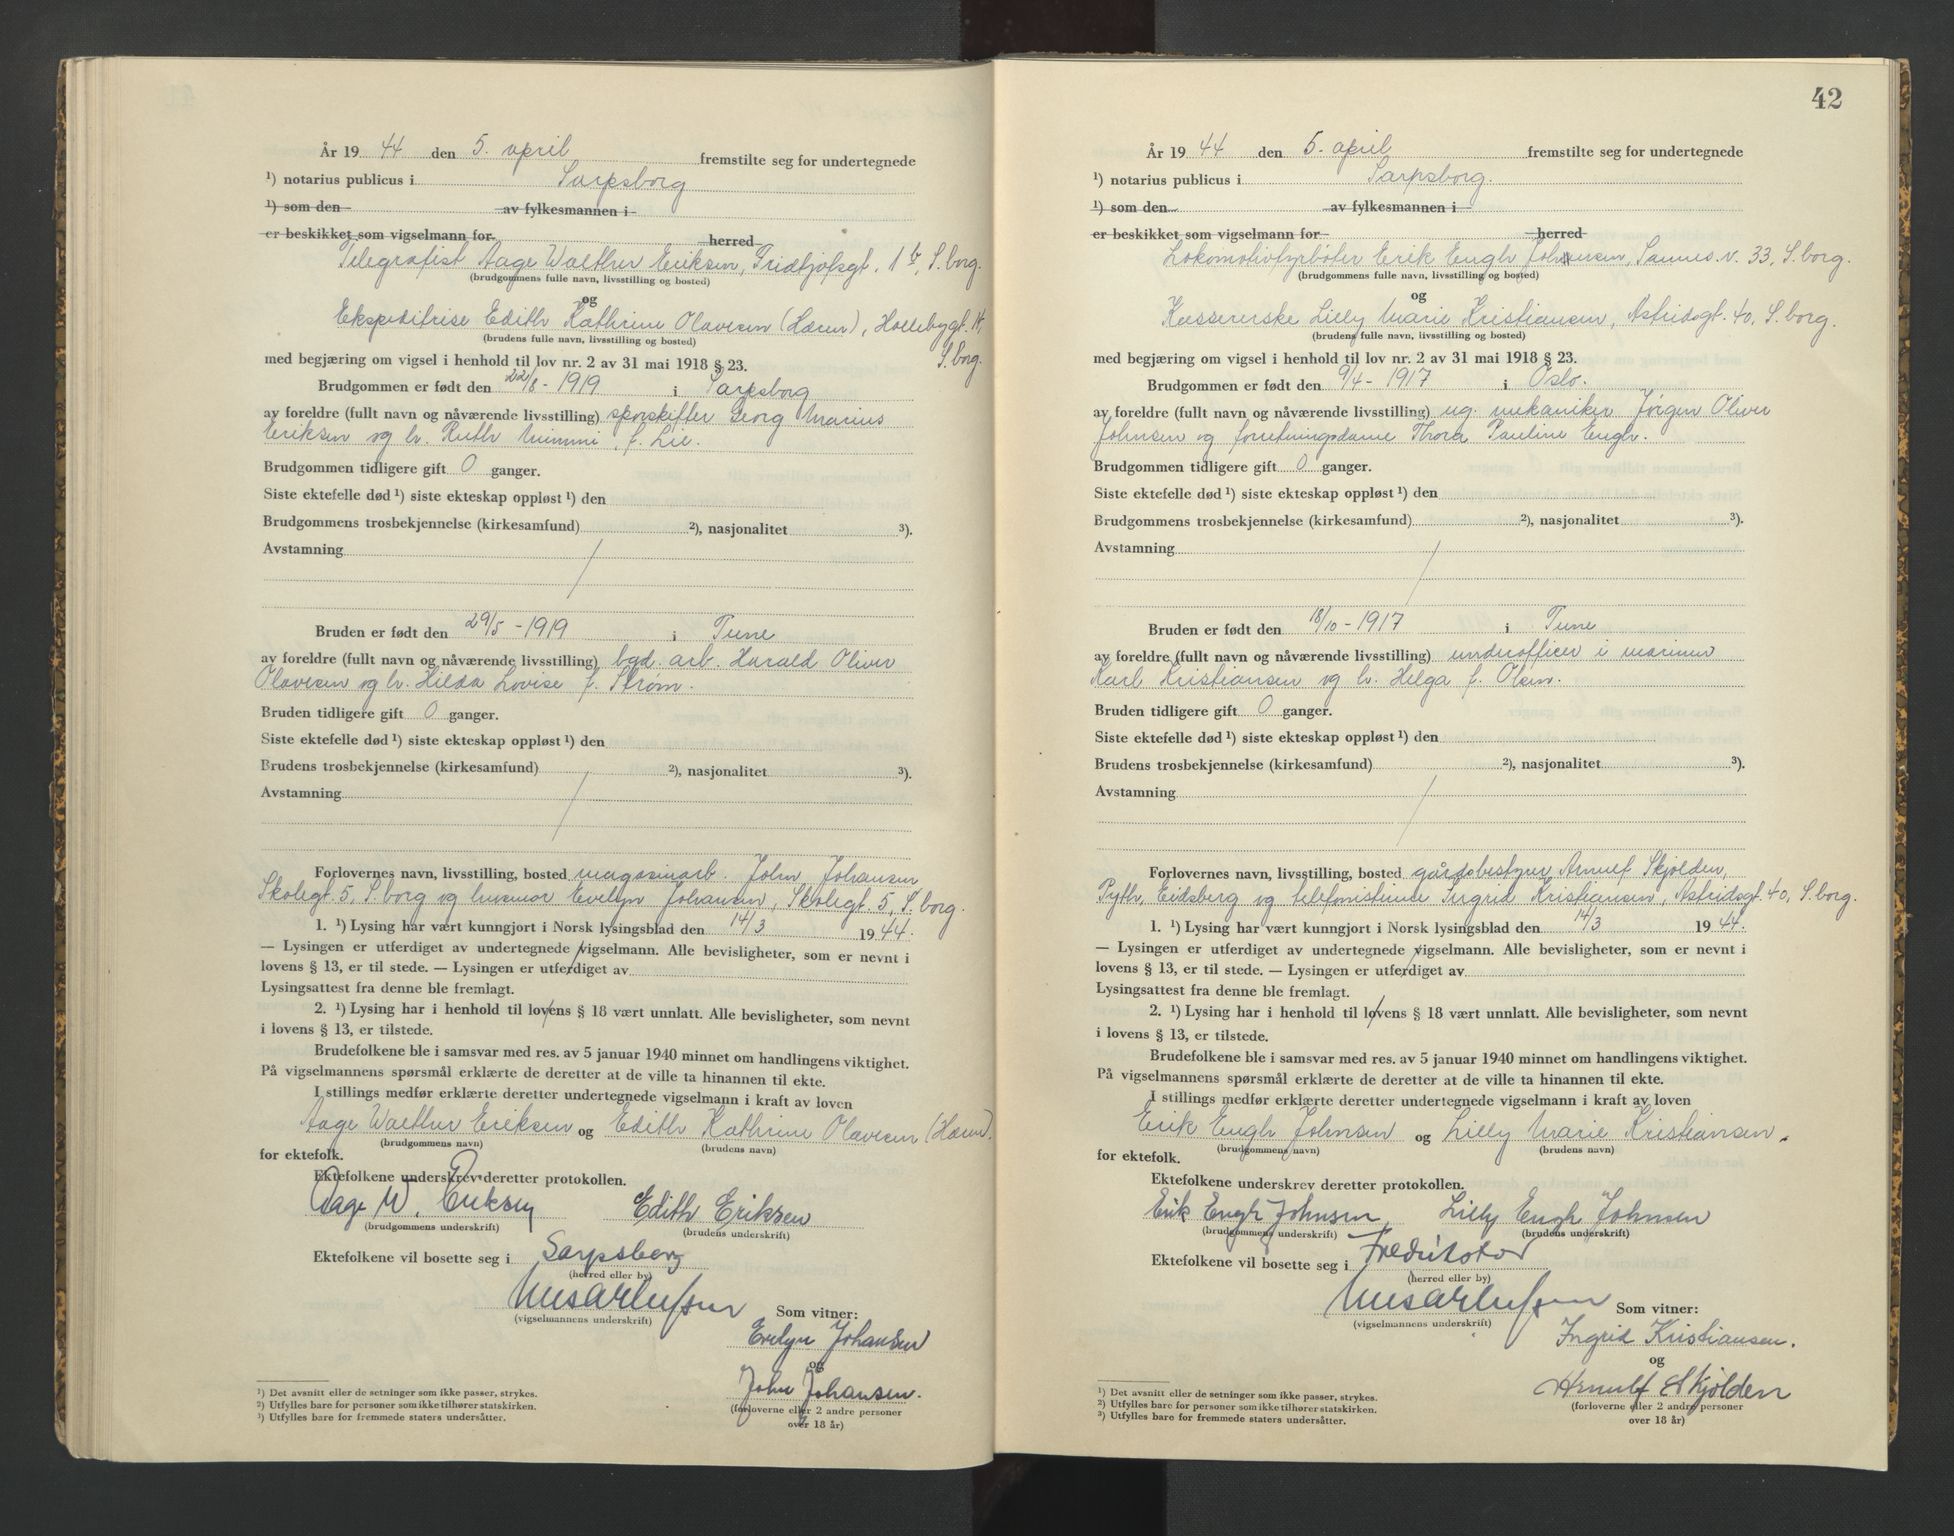 År 19 44 den 5. april fremstilte seg for undertegnede
¹) notarius publicus i Sarpsborg
¹) som den av fylkesmannen i
er beskikket som vigselmann for herred
Telegrafist Aage Walther Eriksen, Fridtjofsgt. 1 b, S.borg.
(brudgommens fulle navn, livsstilling og bosted)
og
Ekspeditrise Edith Kathrine Olavesen (Hæren), Hollebygt. 14,
(brudens fulle navn, livsstilling og bosted)
S.borg.
med begjæring om vigsel i henhold til lov nr. 2 av 31 mai 1918 § 23.
Brudgommen er født den 22/8 - 1919 i Sarpsborg
av foreldre (fullt navn og nåværende livsstilling) sporskifter Georg Marius
Eriksen og h. Ruth Mimmi, f. Lie.
Brudgommen tidligere gift 0 ganger.
Siste ektefelle død ¹) siste ekteskap oppløst ¹) den
Brudgommens trosbekjennelse (kirkesamfund) ²), nasjonalitet ³).
Avstamning
Bruden er født den 29/5 - 1919 i Tune
av foreldre (fullt navn og nåværende livsstilling) bgd. arb. Harald Oliver
Olavesen og h. Hilda Lovise f. Strøm.
Bruden tidligere gift 0 ganger.
Siste ektefelle død ¹) siste ekteskap oppløst ¹) den
Brudens trosbekjennelse (kirkesamfund) ²), nasjonalitet ³).
Avstamning
Forlovernes navn, livsstilling, bosted magasinarb. John Johansen
Skolegt. 5, S.borg og husmor Evelyn Johansen, Skolegt. 5, S.borg.
1. ¹) Lysing har vært kunngjort i Norsk lysingsblad den 14/3 19 44.
— Lysingen er utferdiget av undertegnede vigselmann. Alle bevisligheter, som er nevnt i
lovens § 13, er til stede. — Lysingen er utferdiget av
Lysingsattest fra denne ble fremlagt.
2. ¹) Lysing har i henhold til lovens § 18 vært unnlatt. Alle bevisligheter, som nevnt
i lovens § 13, er tilstede.
Brudefolkene ble i samsvar med res. av 5 januar 1940 minnet om handlingens viktighet.
På vigselmannens spørsmål erklærte de deretter at de ville ta hinannen til ekte.
I stillings medfør erklærte deretter undertegnede vigselmann i kraft av loven
Aage Walther Eriksen og Edith Kathrine Olavesen (Hæren).
(brudgommens navn) (brudens navn)
for ektefolk.
Ektefolkene underskrev deretter protokollen.
Aage W. Eriksen Edith Eriksen
(brudgommens underskrift) (brudens underskrift)
Ektefolkene vil bosette seg i Sarpsborg
(herred eller by)
Som vitner:
(vigselmannens underskrift)
Evelyn Johansen
og
John Johansen.
(forloverne eller 2 andre personer
over 18 år)
¹) Det avsnitt eller de setninger som ikke passer, strykes.
²) Utfylles bare for personer som ikke tilhører statskirken.
³) Utfylles bare for fremmede staters undersåtter.
42
År 19 44 den 5. april fremstilte seg for undertegnede
¹) notarius publicus i Sarpsborg.
¹) som den av fylkesmannen i
er beskikket som vigselmann for herred
Lokomotivfyrbøter Erik Engh Johnsen, Sannes.v. 33, S.borg.
(brudgommens fulle navn, livsstilling og bosted)
og
Kassererske Lilly Marie Kristiansen, Astridsgt. 40, S.borg.
(brudens fulle navn, livsstilling og bosted)
med begjæring om vigsel i henhold til lov nr. 2 av 31 mai 1918 § 23.
Brudgommen er født den 9/4 - 1917 i Oslo.
av foreldre (fullt navn og nåværende livsstilling) ug. mekaniker Jørgen Oliver
Johnsen og forretningsdame Thora Pauline Engh.
Brudgommen tidligere gift 0 ganger.
Siste ektefelle død ¹) siste ekteskap oppløst ¹) den
Brudgommens trosbekjennelse (kirkesamfund) ²), nasjonalitet ³).
Avstamning
Bruden er født den 18/10 - 1917 i Tune
av foreldre (fullt navn og nåværende livsstilling) underofficer i marinen
Karl Kristiansen og h. Helga f. Olsen.
Bruden tidligere gift 0 ganger.
Siste ektefelle død ¹) siste ekteskap oppløst ¹) den
Brudens trosbekjennelse (kirkesamfund) ²), nasjonalitet ³).
Avstamning
Forlovernes navn, livsstilling, bosted gårdsbestyrer Arnulf Skjolden,
Eidsberg og telefonistinde Ingrid Kristiansen, Astridsgt. 40, S.borg.
1. ¹) Lysing har vært kunngjort i Norsk lysingsblad den 14/3 19 44.
— Lysingen er utferdiget av undertegnede vigselmann. Alle bevisligheter, som er nevnt i
lovens § 13, er til stede. — Lysingen er utferdiget av
Lysingsattest fra denne ble fremlagt.
2. ¹) Lysing har i henhold til lovens § 18 vært unnlatt. Alle bevisligheter, som nevnt
i lovens § 13, er tilstede.
Brudefolkene ble i samsvar med res. av 5 januar 1940 minnet om handlingens viktighet.
På vigselmannens spørsmål erklærte de deretter at de ville ta hinannen til ekte.
I stillings medfør erklærte deretter undertegnede vigselmann i kraft av loven
Erik Engh Johnsen og Lilly Marie Kristiansen.
(brudgommens navn) (brudens navn)
for ektefolk.
Ektefolkene underskrev deretter protokollen.
Erik Engh Johnsen Lilly Engh Johnsen
(brudgommens underskrift) (brudens underskrift)
Ektefolkene vil bosette seg i
(herred eller by)
Som vitner:
(vigselmannens underskrift)
Ingrid Kristiansen.
og
Arnulf Skjolden
(forloverne eller 2 andre personer
over 18 år)
¹) Det avsnitt eller de setninger som ikke passer, strykes.
²) Utfylles bare for personer som ikke tilhører statskirken.
³) Utfylles bare for fremmede staters undersåtter.